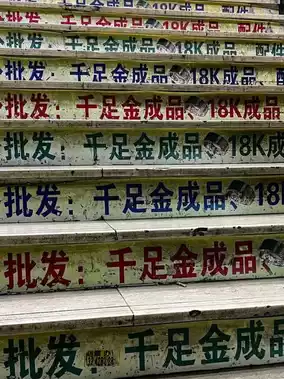 千足金成品、18K成品
批发：千足金成品、18K成品、配件
批发：千足金成品、18K成品、配件
批发：千足金成品、18K成品、配
批发：千足金成品、18K成品、
批发：千足金成品、18K成
批发：千足金成品、18K
批发：千足金成品、
批发：千足金成品